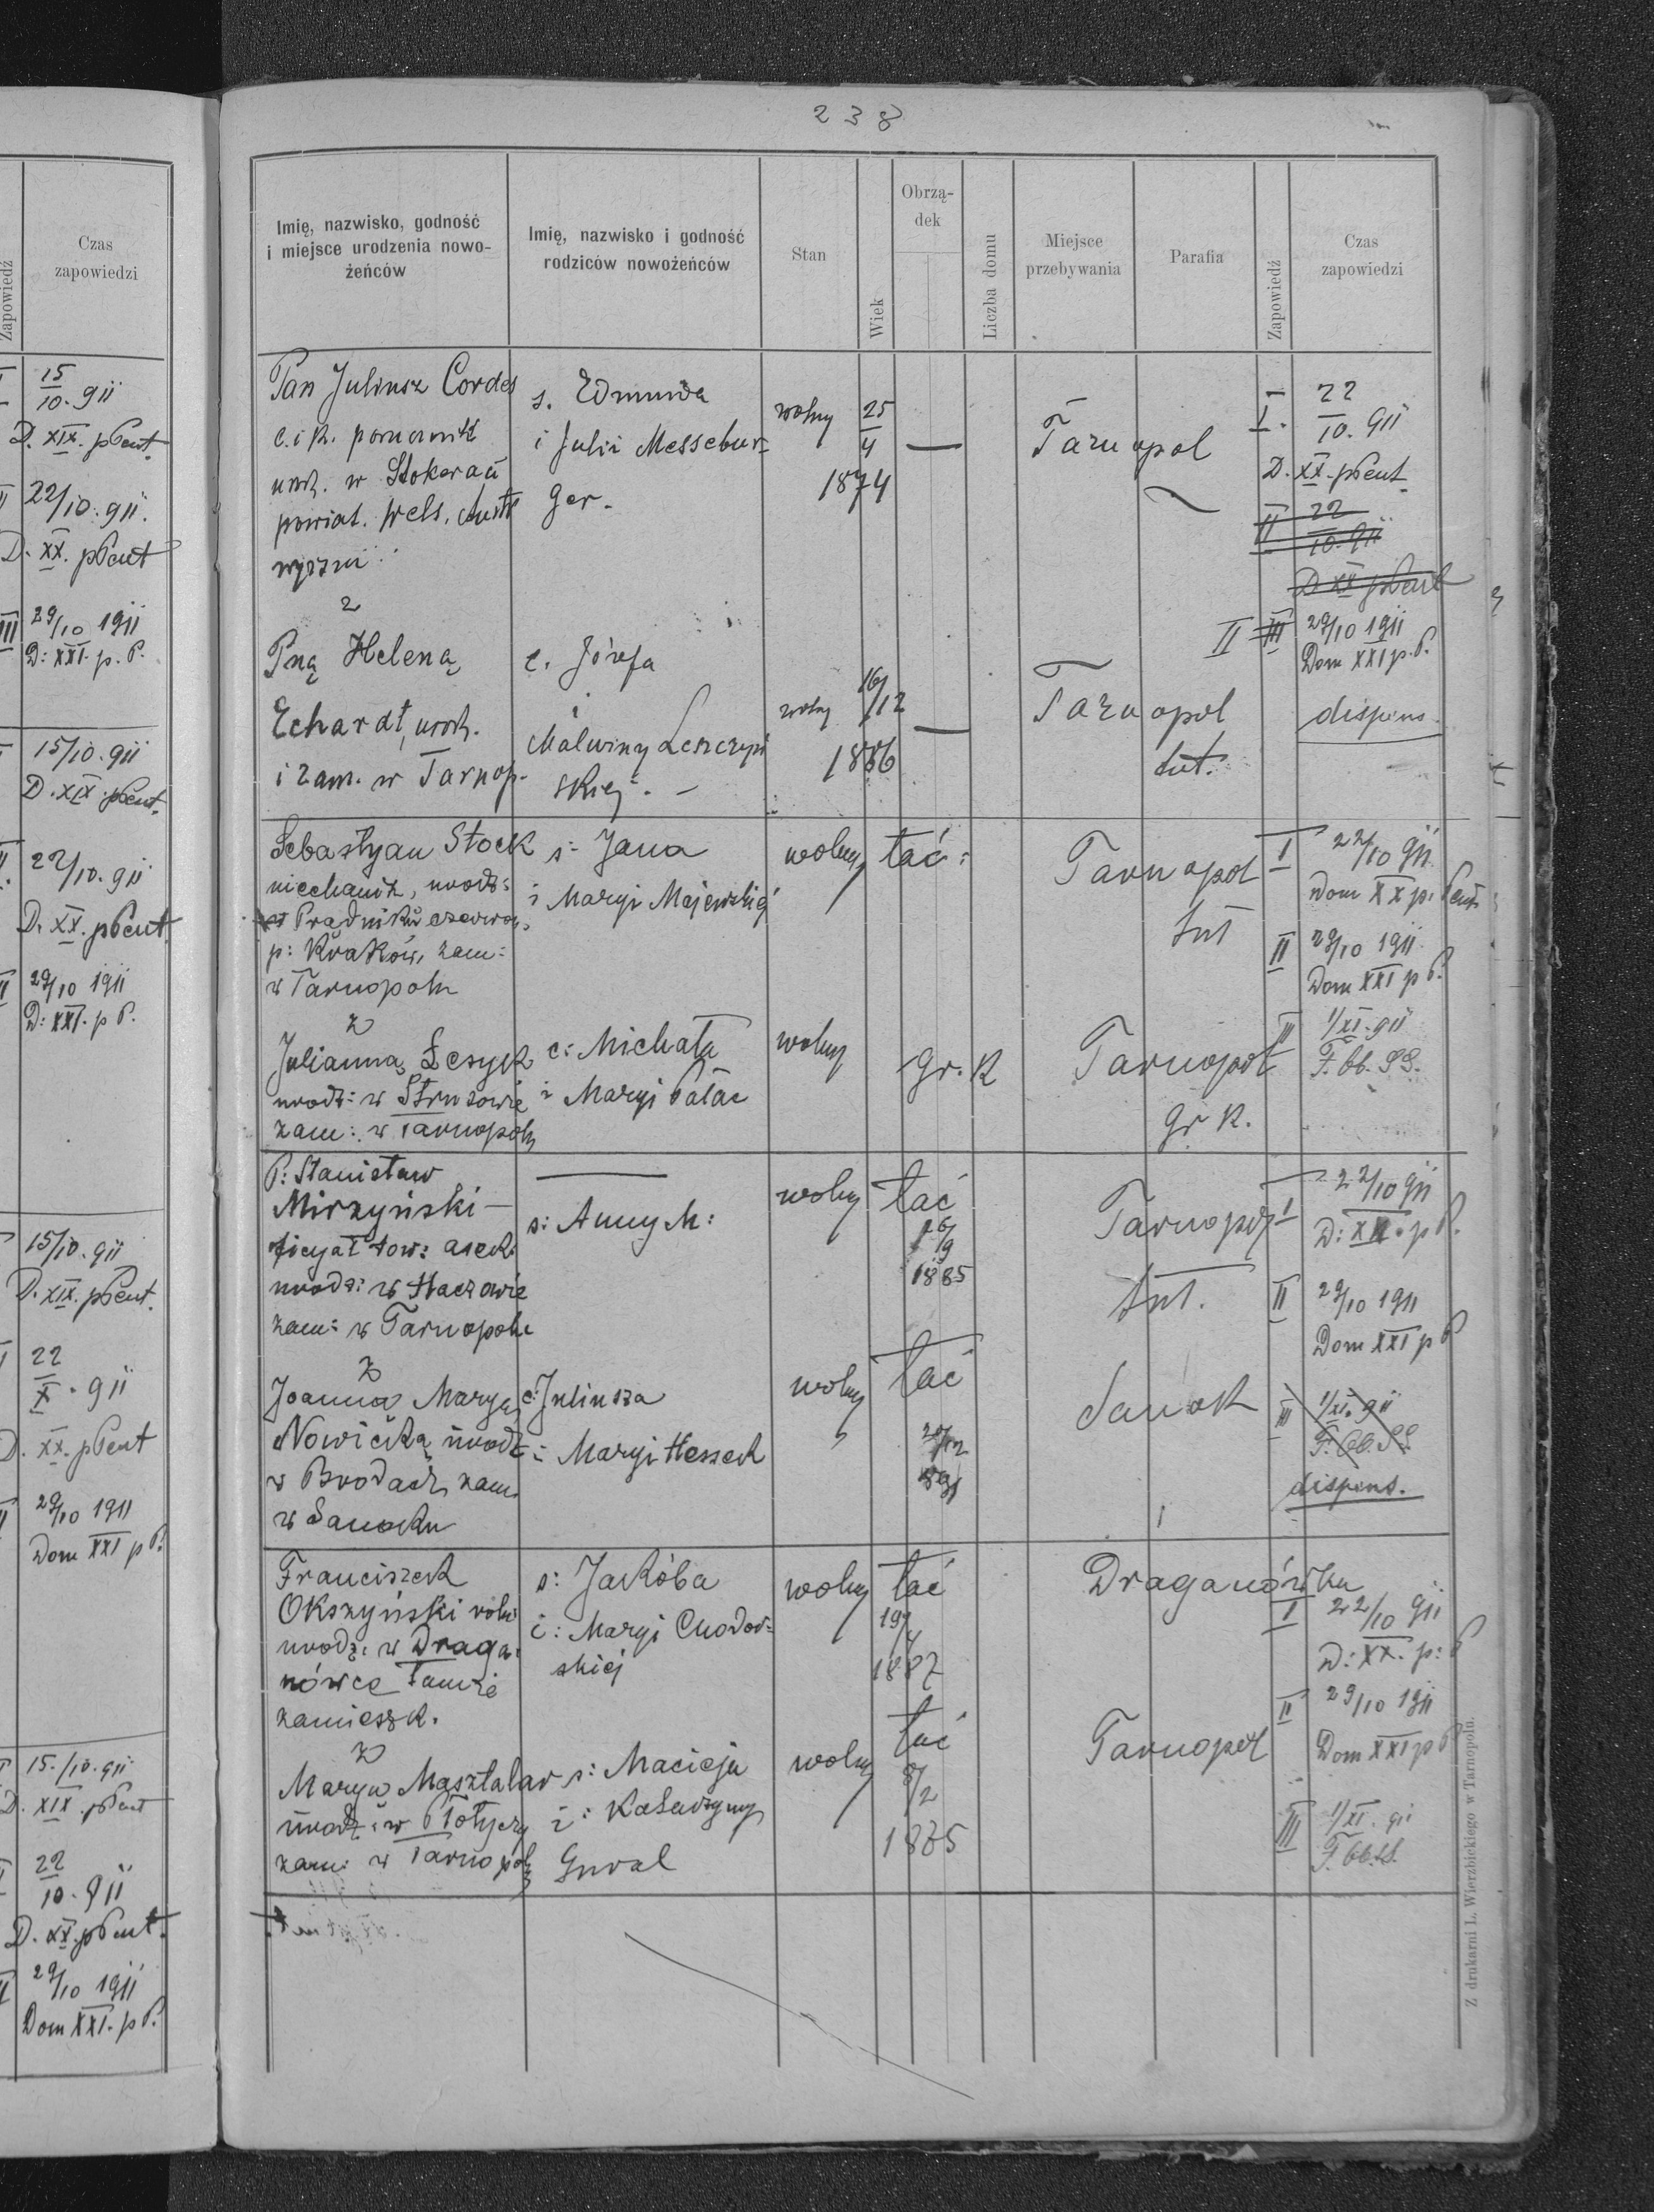 Zapowiedź
Czas
zapowiedzi
15
10. 911
D. XIX. pPent.
22/10. 911.
D. XX. pPent
III 29/10 1911
D: XXI. p. P.
15/10. 911
D. XIX. pPent.
22/10. 911
D. XX. pPent.
29/10 1911
D: XXI. p P.
15/10. 911
D. XIX. pPent.
22
X. 911
D. XX. pPent
29/10 1911
Dom XXI p P.
15./10. 911
D. XIX. pPent
22
10. 911
D. XX. pPent.
29/10 1911
Dom XXI. p P.
238
Imię, nazwisko, godność
i miejsce urodzenia nowo-
żeńców
Imię, nazwisko i godność
rodziców nowożeńców
Stan
Wiek
Obrzą-
dek
Liczba domu
Miejsce
przebywania
Parafia
Zapowiedź
Czas
zapowiedzi
Pan Juliusz Cordes
c. i k. porucznik
urodz. w Stokerau
powiat. Wels.
wyższej
z
s. Edmunda
i Julii Messebur-
ger.
wolny
25
4
1874
—
Tarnopol
I. 22
10. 911
D. XX. pPent.
II 22
10. 911
D XX pPent
II III 29/10 1911
Dom XXI p. P.
dispens.
Pną Heleną
Echardt, urodz.
i zam. w Tarnop.
c. Józefa
i
Malwiny Leszczyń
skiej. —
wolny
16/12
1886
—
Tarnopol
tut.
Sebastyan Stock
mechanik, urodz:
w Prądniku czerwon,
p: Kraków, zam:
w Tarnopolu
z
s: Jana
i Maryi Majewskiej
wolny
łać:
Tarnopol
tut
I 22/10 911
Dom XX p. Pent.
II 29/10 1911
Dom XXI p P.
III 1/XI. 911
F. Ob. SS.
Julianną Lesyk
urodz: w Strusowie
zam: w Tarnopolu
c: Michała
i Maryi Pałac
wolny
gr. K
Tarnopol
gr K.
P: Stanisław
Mirzyński —
ficyał tow: asek.
urodz: w Haczowie
zam: w Tarnopolu
z
—
s: Anny M:
wolny
łać
26/9
1885
Tarnopol
tut.
I 22/10 911
D: XX. p P.
II 29/10 1911
Dom XXI p P
Joanną Maryą
Nowicką urodz
w Brodach, zam.
w Sanoku
c: Juliusza
i Maryi Hessek
wolny
łać
20/12
891
Sanok
III 1/XI. 911
F. Ob. SS.
dispens.
Franciszek
Okszyński roln:
urodz: w Draga:
nówce tamże
zamieszk.
z
s: Jakóba
i: Maryi Chodor:
skiej
wolny
łać
1887
Draganówka
I 22/10 911
D: XX. p: P
II 29/10 1911
Dom XXI p P
Maryą Masztalar
urodz: w Płotyczy
zam: w Tarnopolu
s: Macieja
i: Katarzyny
Gural
wolny
łać
8/2
1885
Tarnopol
III 1/XI. 911
F. Ob. SS.
Z drukarni L. Wierzbickiego w Tarnopolu.